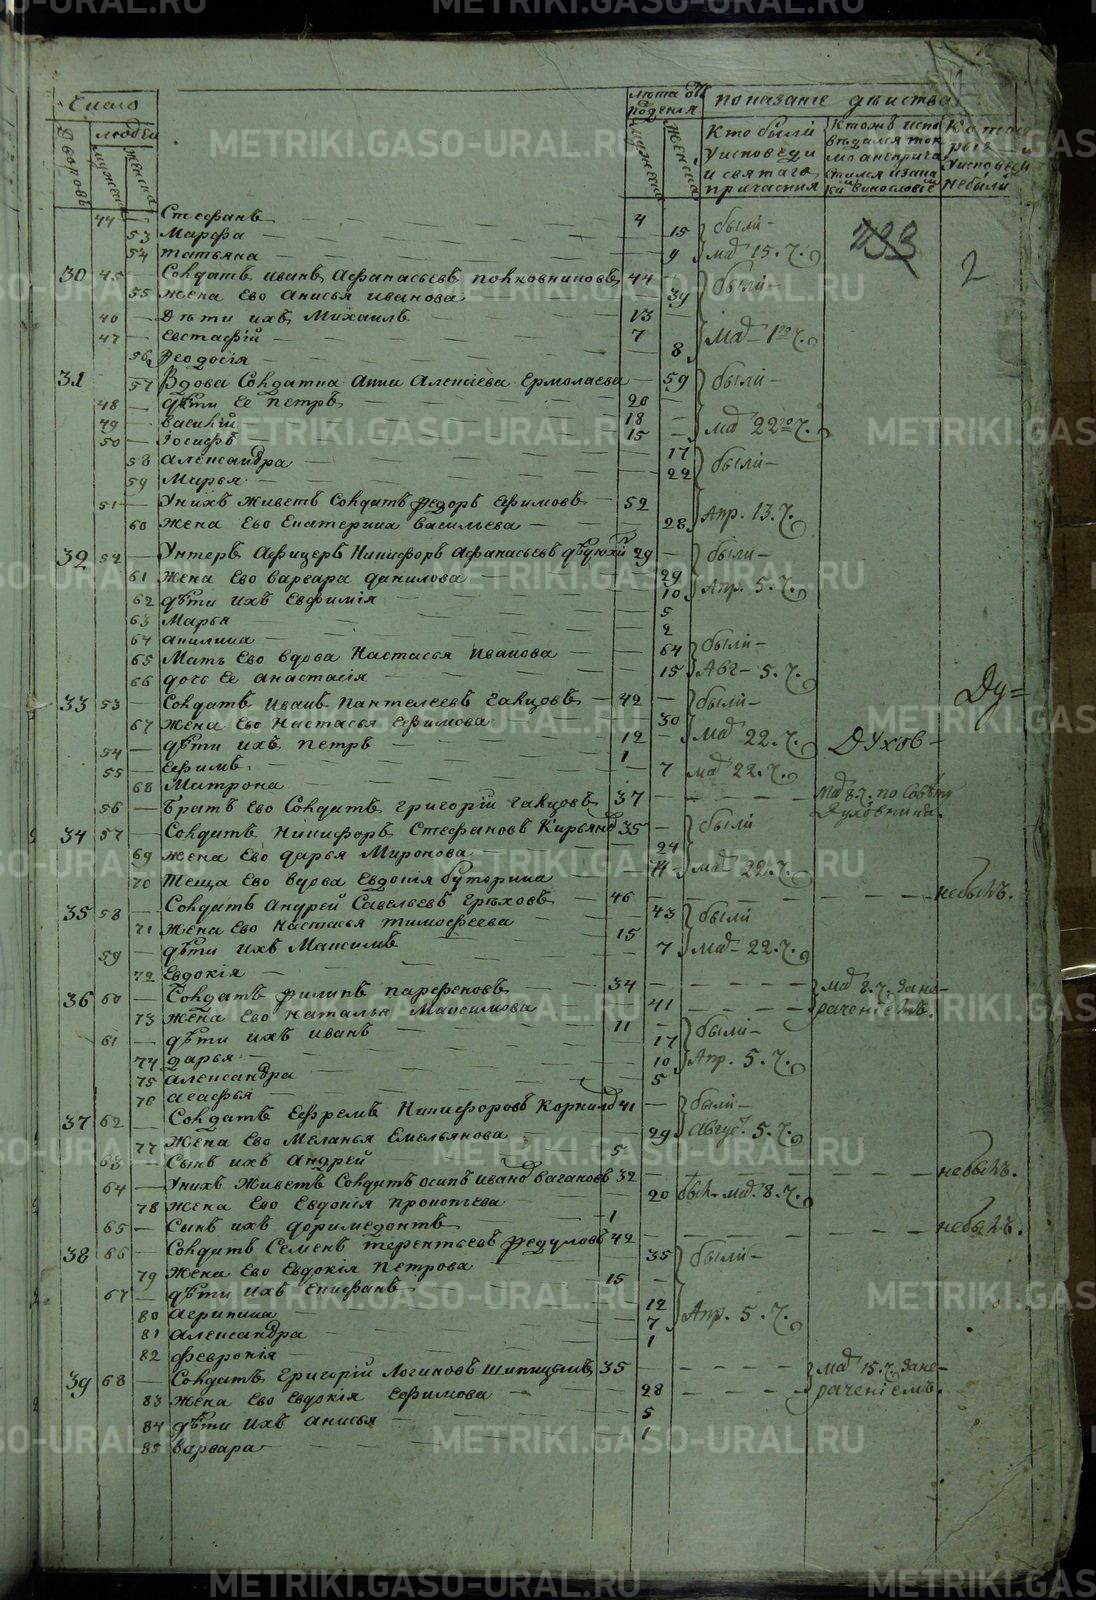 Число
людей
Дворовъ
мужеска
женска
лѣта от рождения
мужеска
женска
показание действа
Кто были у исповеди и святаго причастия
Которые у исповеди не были
44 — Стефанъ 4
53 Марфа 15 были
54 татьяна 9 май 15. ч.
233
2
30 45 — Солдатъ иванъ Афанасьевъ полковниковъ 44 были
55 жена ево анисья иванова 39
— дѣти ихъ Михаилъ 13
47 — евстафiй 7 май
56 феодосiя 8
31 57 Вдова Солдатка Анна Алексiева ермолаева 59 были
48 — дѣти ее петръ 20
49 — васил̇iй 18
50 — Iосифъ 15 май 22 ч.
58 александра 17
59 Марья 22 были
51 — У нихъ живетъ Солдатъ федоръ ефимовъ 52
60 жена ево екатерина васильева 28 Апр. 13. ч.
32 52 — Унтеръ Афицеръ Никифоръ афанасьевъ дѣдюхи 29 были
61 жена ево варвара данилова 29
62 дѣти ихъ евфимiя 10 Апр. 5. ч.
63 Марья 5
64 акилина 2
65 Мать ево вдова Настасья иванова 64 были
66 дочь ее анастасiя 15 Авг 5. ч.
Ду=
33 53 — Солдатъ иванъ пантелеевъ галцовъ 42 были
67 жена ево настасья ефимова 30
54 — дѣти ихъ петръ 12 май 22. ч.
духов
55 — ефимъ 1
68 Матрона 7 май 22. ч.
56 — братъ ево Солдатъ григорiй галцовъ 37 май 8. ч. по совѣту духовника.
34 57 — Солдатъ никифоръ стефановъ Кирьянов 35 были
69 жена ево дарья Миронова 24
70 теща ево вдова евдокiя буторина май 22. ч.
35 58 — Солдатъ андрей савельевъ ерѣховъ 46 не былъ.
71 жена ево настасья тимофеева 43 были
59 — дѣти ихъ Максимъ 15
72 евдокiя 7 май 22. ч.
36 60 — Солдатъ филипъ парфеновъ 34 май 8. ч. за нерачениемъ.
73 жена ево наталья Максимова 41
61 — дѣти ихъ иванъ 11
74 дарья 17 были
75 александра 10 Апр. 5. ч.
76 агафья 5
37 62 — Солдатъ ефремъ Никифоровъ Корнилов 41 были
77 жена ево меланья емельянова 29 август. 5. ч.
63 — Сынъ ихъ андрей 5
64 — У нихъ живетъ Солдатъ осипъ иванов вагановъ 32 не былъ.
78 жена ево евдокiя прокопьева 20 был. май. 8. ч.
65 — Сынъ ихъ доримедонтъ 1
38 66 — Солдатъ Семенъ терентьевъ федуловъ 42 не былъ.
79 жена ево евдокiя петрова 35 были
67 — дѣти ихъ епифанъ 15
80 агрипина 12
81 александра 7 Апр. 5. ч.
82 феврония 1
39 68 — Солдатъ григорiй логиновъ шипицынъ 35 май 15. ч. за нерачениемъ.
83 жена ево евдокiя ефимова 28
84 дѣти ихъ анисья 5
85 варвара 1
METRIKI.GASO-URAL.RU